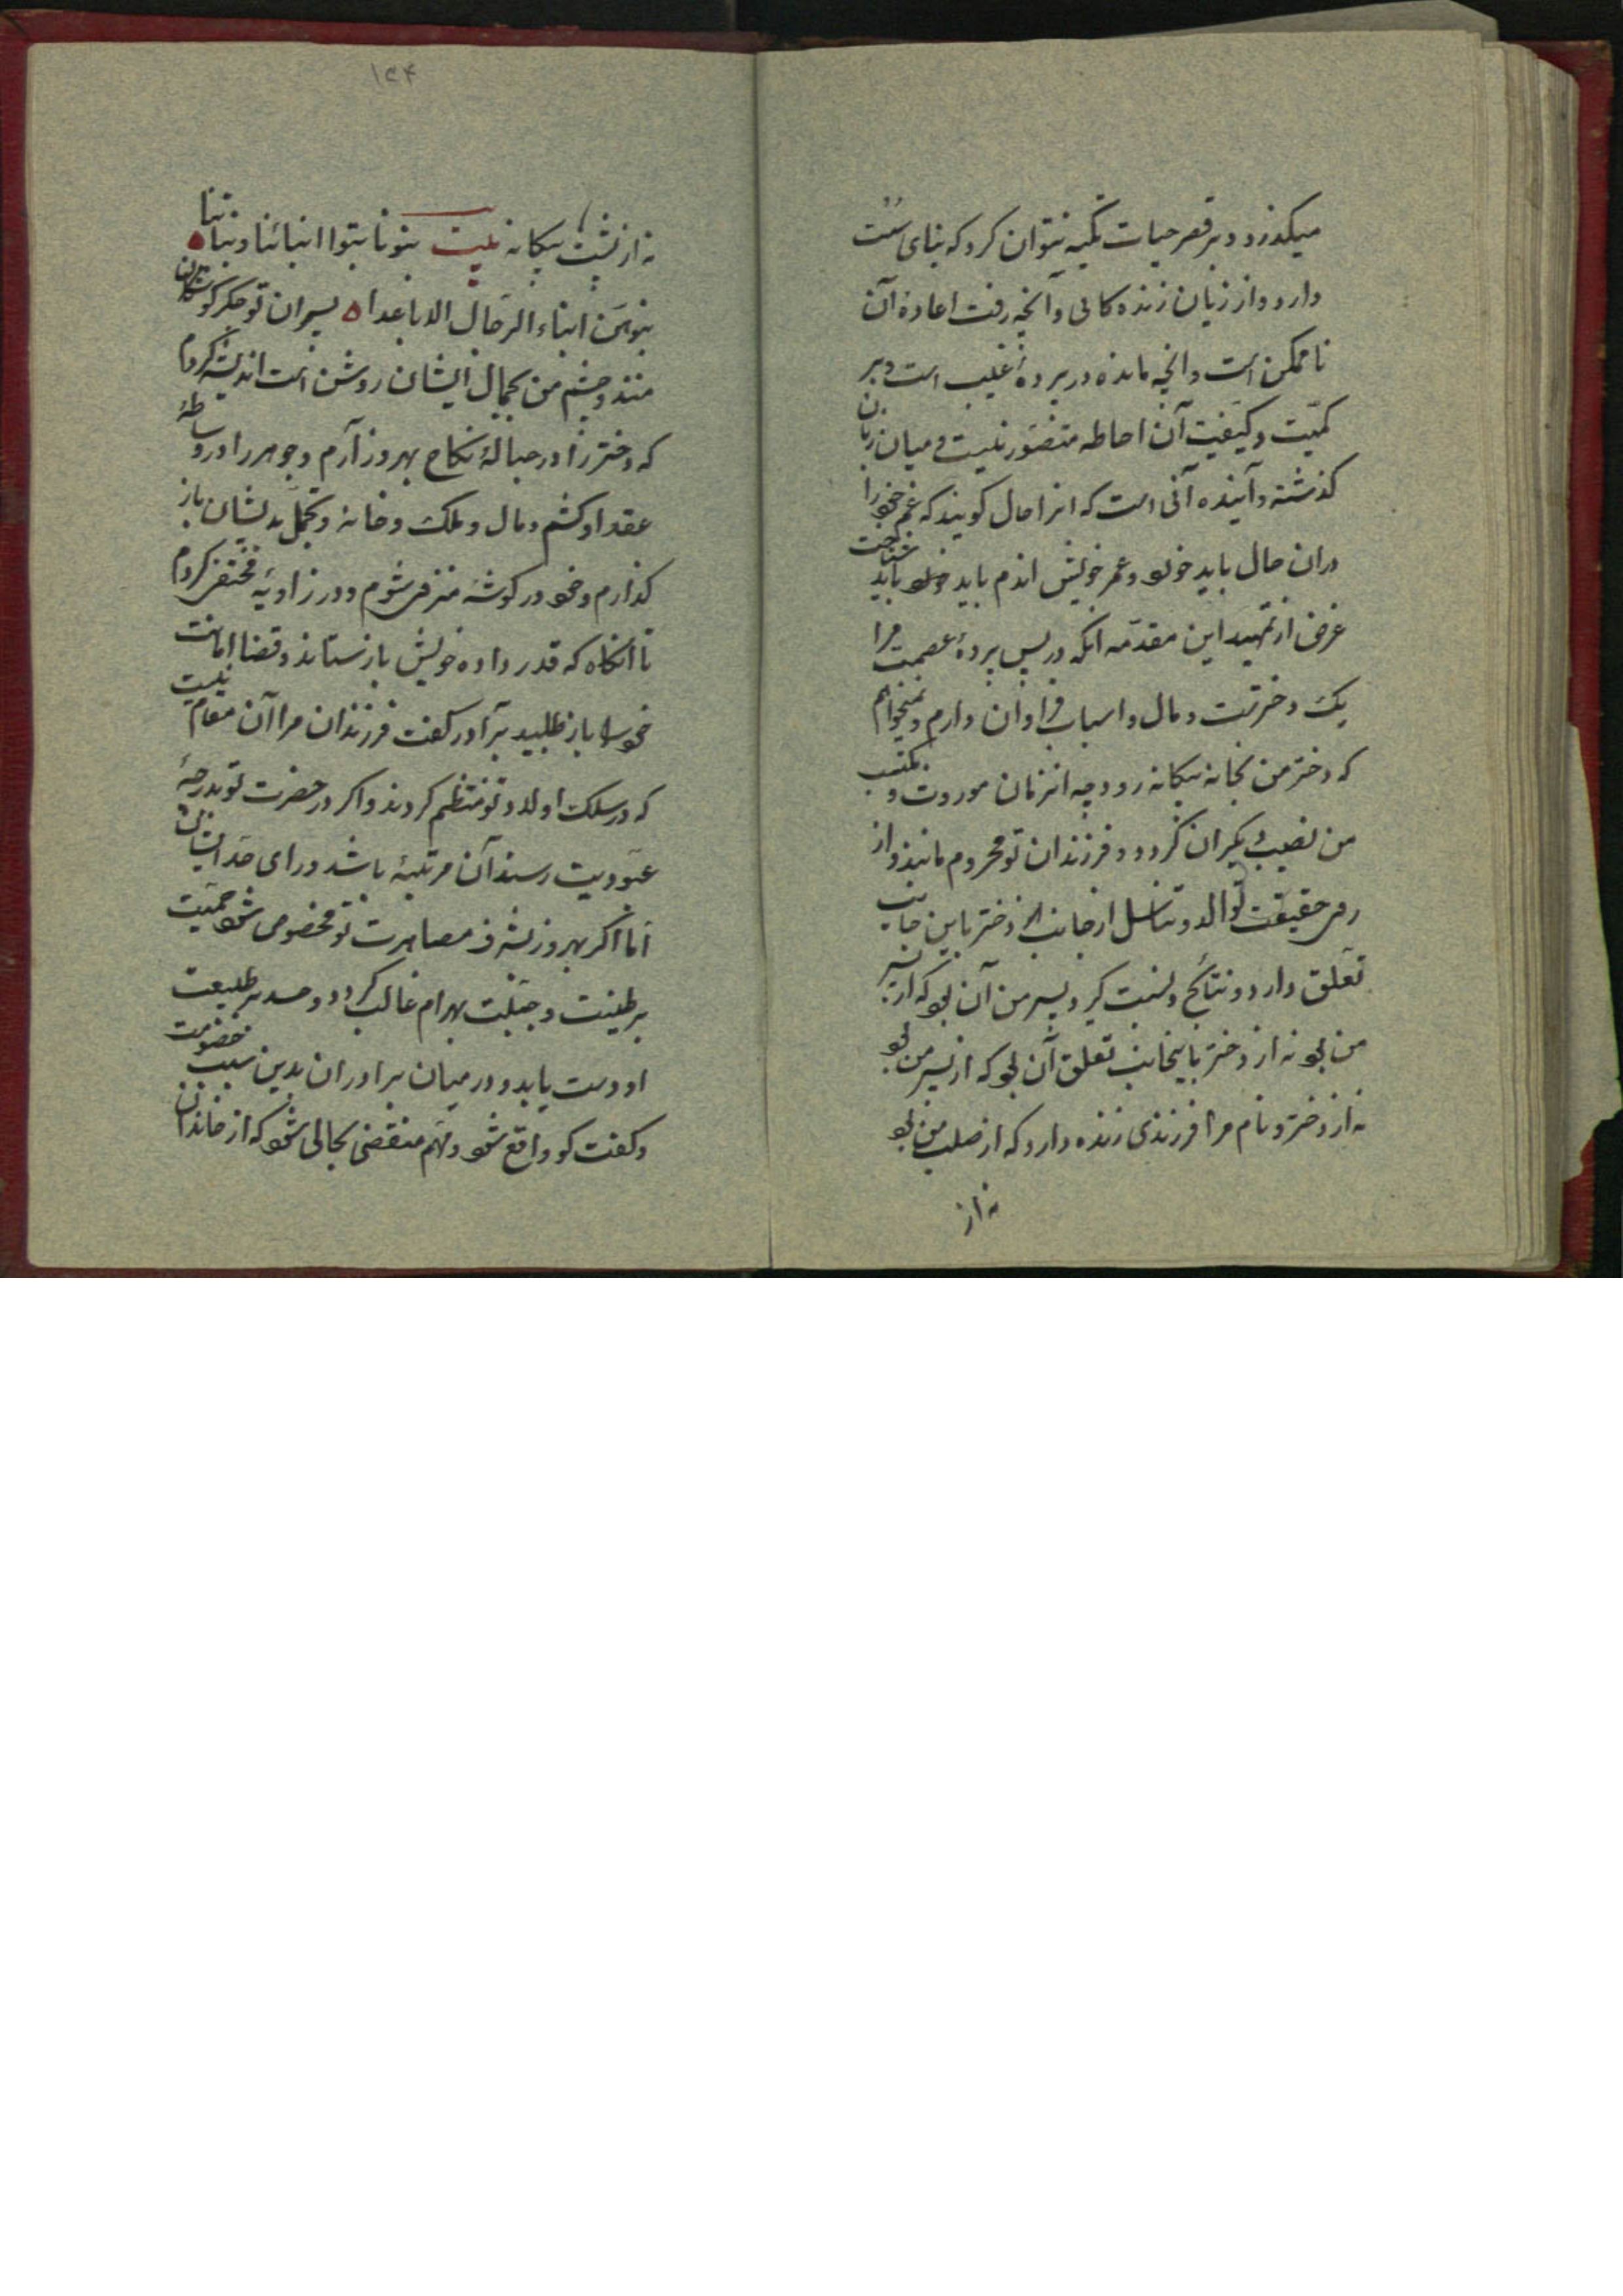 میکذرد و بر قصر حیات تکیه نتوان کرد که بنای سست
دارد و از زیان زنده کانی و آنچه رفت اعادۀ آن
ناممکن است و انچه مانده در پردۀ غیب است و بر
کمیّت و کیفیت آن احاطه متصوّر نیست و میان زمان
کذشته و آینده آنی است که انرا حال کویند که غم خود را
دران حال باید خورد و عمر خویش اندم باید شناخت
غرض از تمهید این مقدّمه انکه در پس پردۀ عصمت مرا
یک دختر تست و مال و اسباب فراوان دارم و نمیخواهم
که دختر من بخانه بیکانه رود و چه انزمان موروث و مکتسب
من نصیب دیکران کردد و فرزندان تو محروم مانند و از
روی حقیقت توالد و تناسل از جانب دختر باین جانب
تعلق دارد و نتائج و نسبت کیرد پسر من آن بود که از پسر
من بود نه از دختر باینجانب تعلق آن بود که از پسر من بود
نه از دختر و نام مرا فرزندی زنده دارد که از صلب من بود
نه از
۱۶۴
نه از پشت بیکانه بیت بنونا بنوا ابنائنا و بناتنا
بنوهنّ ابناء الرجال الاباعد پسران تو جکرکوشکان
منند و چشم من بجمال ایشان روشن است اندیشه کردم
که دختر را در حبالۀ نکاح بهروز آرم و جوهر را در واسطۀ
عقد او کشم و مال و ملک و خانه و تجمّل بدیشان باز
کذارم و خود در کوشۀ منزوی شوم و در زاویۀ مختصر کردم
تا آنکاه که قدر داده خویش باز ستاند و قضا امانت
خود را باز طلبید برآدر کفت فرزندان مرا آن مقام نیست
که در سلک اولاد تو منتظم کردند و اکر در حضرت تو بدرجۀ
عبودیت رسند آن مرتبۀ باشد ورای حدّ ایشان
اما اکر بهروز بشرف مصاهرت تو مخصوص شود حمیّت
بر طینت و جبلّت بهرام غالب کردد و حسد بر طبیعت
او دست یابد و در میان برادران بدین سبب خصومت
و کفت کو واقع شود و مهّم منقضی بحالی شود که از خاندان